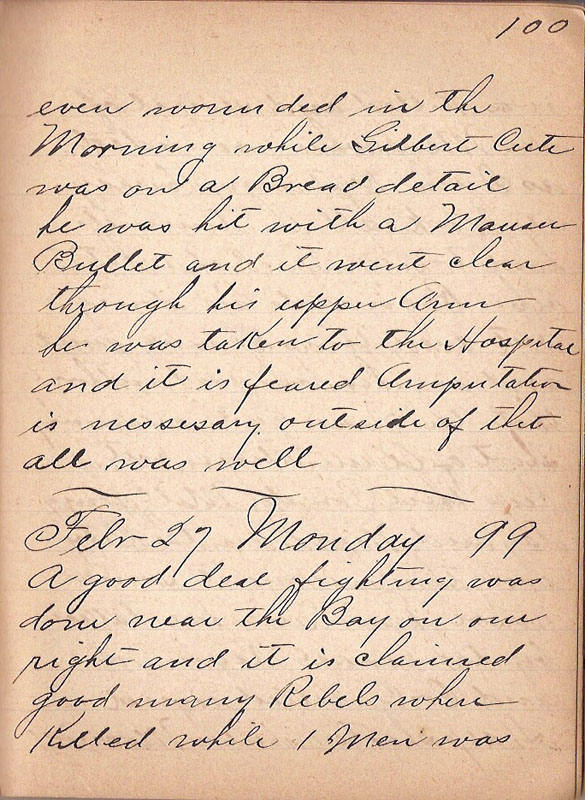 100
even wounded in the
Morning while Gilbert Cute
was on a Bread detail
he was hit with a Mauser
Bullet and it went clear
through his upper Arm
he was taken to the Hospital
and it is feared Amputation
is nessesary. outside of that
all was well
Febr 27 Monday 99
A good deal fighting was
done near the Bay on our
right and it is claimed
good many Rebels where
Killed while 1 Men was